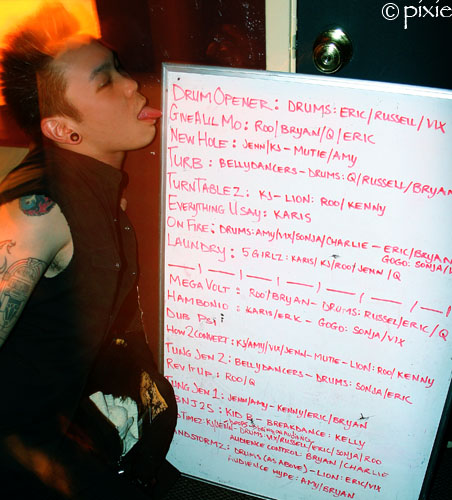 © pixie
DRUM OPENER: DRUMS: ERIC/RUSSELL/VIX
GIVE ALL MO: ROO/BRYAN/Q/ERIC
NEW HOLE: JENN/KJ-MUTIE/AMY
TURB: BELLYDANCERS-DRUMS: Q/RUSSELL/BRYAN
TURNTABLE 2: KJ-LION: ROO/KENNY
EVERYTHING U SAY: KARIS
ON FIRE: DRUMS: AMY/VIX/SONJA/CHARLIE - ERIC/BRYAN
GOGO: SONJA/
LAUNDRY: 5 GIRLZ: KARIS/KJ/ROO/JENN/Q
MEGAVOLT: ROO/BRYAN-DRUMS: RUSSEL/ERIC/Q
HAMBONIO: KARIS/ERIK- GOGO: SONJA/VIX
DUB PSI:
HOW 2 CONVERT: KJ/AMY/VIX/JENN-MUTIE-LION: ROO/KENNY
TUNG JEN 2: BELLYDANCERS- DRUMS: SONJA/ERIC
REV IT UP: ROO/Q
TUNG JEN 1: JENN/AMY-KENNY/ERIC/BRYAN
BNJ25: KID B- BREAKDANCE: KELLY
DRUMS: VIX/RUSSELL/ERIC/SONJA/ROO
AUDIENCE CONTROL: BRYAN/CHARLIE
ANDSTORM2: DRUMS (AS ABOVE) - LION: ERIC/VIX
AUDIENCE HYPE: AMY/BRYAN